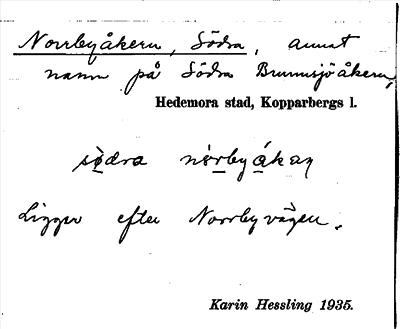 Norrbyåkern, Södra, annat
namn på Södra Brunnsjöåkern,
Hedemora stad, Kopparbergs l.
sødra nórbyákaɳ
Ligger efter Norrbyvägen.
Karin Hessling 1935.